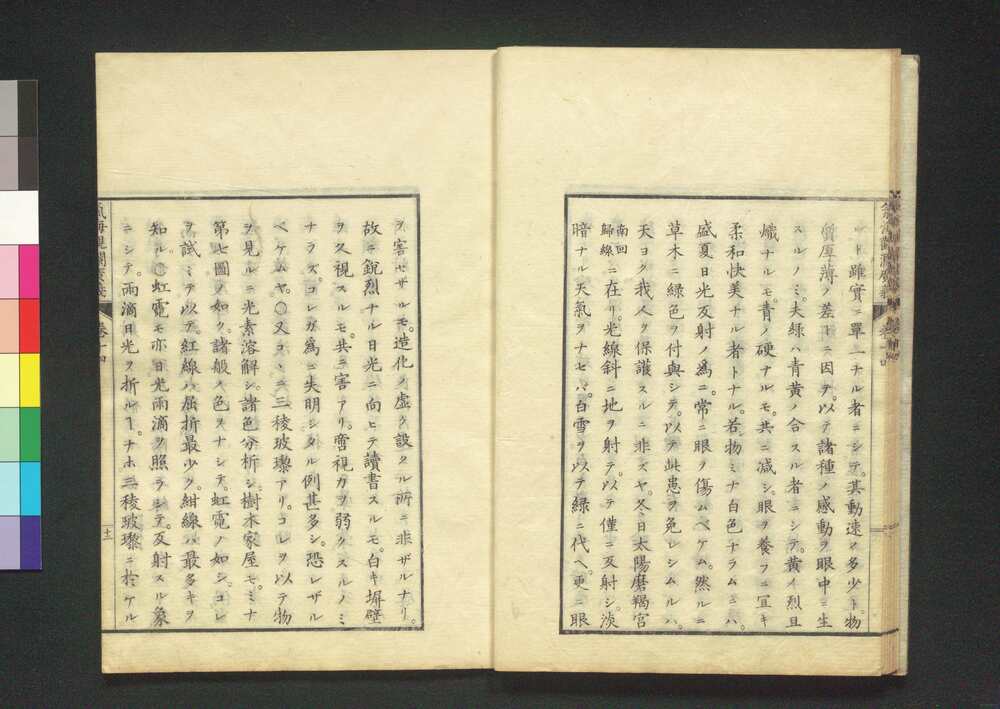 ト雖實ニ單一ナル者ニシテ。其動速ト多少ト。物
質厚薄ノ差トニ因ヲ。以テ諸種ノ感動ヲ眼中ニ生
スルノミ。夫緑ハ青黄ノ合スル者ニシテ。黄イ烈且
熾ナルモ。青ノ硬ナルモ。共ニ減シ。眼ヲ養フニ宜キ
柔和快美ナル者トナル。若物ミナ白色ナラムニハ。
盛夏日光反射ノ爲ニ。常ニ眼ヲ傷ムベケム。然ルニ
草木ニ緑色ヲ付與シテ。以テ此患ヲ免レシムルハ。
天ヨク我人ヲ保護スルニ非ズヤ。冬日太陽磨羯宮
南回歸線ニ在リ。光線斜ニ地ヲ射テ。以テ僅ニ反射シ。淡
暗ナル天氣ヲナセバ。白雪ヲ以テ緑ニ代ヘ。更ニ眼
ヲ害セザルモ。造化ノ虚ク設クル所ニ非ザルナリ。
故ニ鋭烈ナル日光ニ向ヒテ讀書スルモ。白キ塀壁
ヲ久視スルモ。共ニ害アリ。啻視力ヲ弱クスルノミ
ナラズ。コレガ爲ニ失明シタル例甚多シ。恐レザル
ベケムヤ。〇又コヽニ三稜玻瓈アリ。コレヲ以テ物
ヲ見ルニ光素溶解シ。諸色分析シ。樹木家屋モ。ミナ
第七圖ノ如ク。諸般ノ色ヲナシテ。虹霓ノ如シ。コレ
ヲ試ミテ以テ。紅線ハ屈折最少ク。紺線ハ最多キヲ
知ル。〇虹霓モ亦日光雨滴ヲ照ラシテ。反射スル象
ニシテ。雨滴日光ヲ折ルヿ。ナホ三稜玻瓈ニ於ケル
氣海觀瀾廣義
卷十四
十一